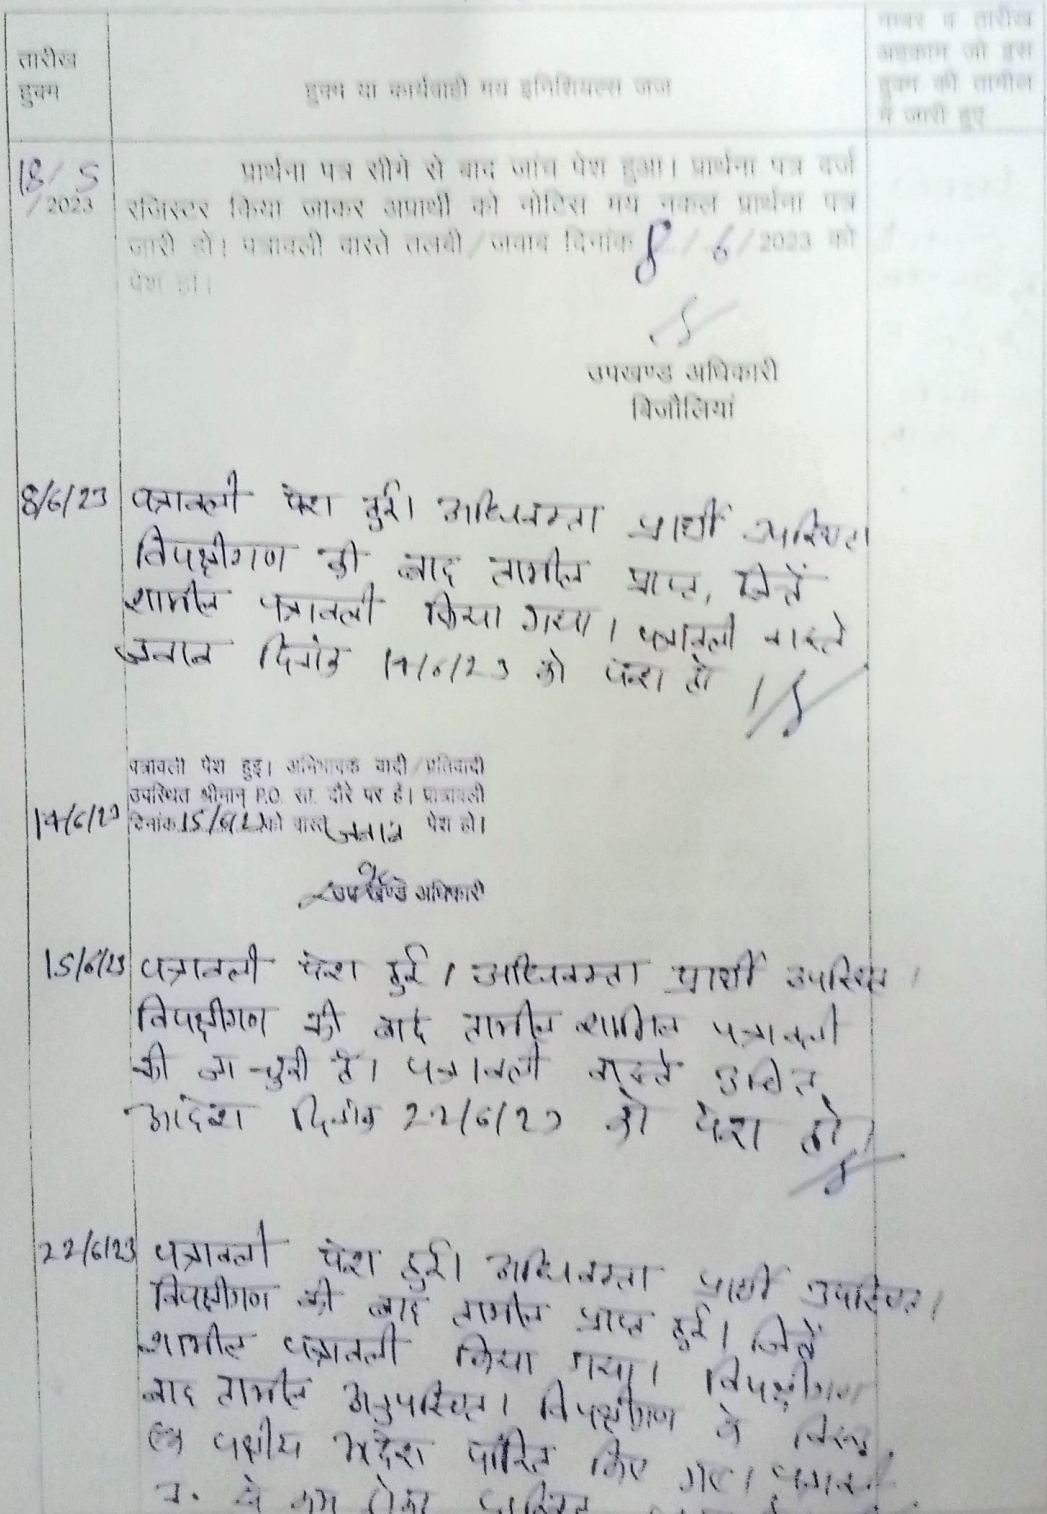 तारीख
हुक्म
हुक्म या कार्यवाही मय इनिशियल्स जज
नम्बर व तारीख
अहकाम जो इस
हुक्म की तामील
में जारी हुए
18/5
/2023
प्रार्थना पत्र सीगे से बाद जांच पेश हुआ। प्रार्थना पत्र दर्ज
रजिस्टर किया जाकर अप्रार्थी को नोटिस मय नकल प्रार्थना पत्र
जारी हो। पत्रावली वास्ते तलबी/जवाब दिनांक 8/6/2023 को
पेश हो।
उपखण्ड अधिकारी
बिजौलियां
8/6/23 पत्रावली पेश हुई। अधिवक्ता प्रार्थी उपस्थित।
विपक्षीगण की बाद तामील प्राप्त, जिसे
शामील पत्रावली किया गया। पत्रावली वास्ते
जवाब दिनांक 14/6/23 को पेश हो।
पत्रावली पेश हुई। अभिभाषक वादी/प्रतिवादी
उपस्थित श्रीमान् P.O. सा. दौरे पर हैं। पत्रावली
14/6/23 दिनांक 15/6/23 को वास्ते जवाब पेश हो।
उपखण्ड अधिकारी
15/6/23 पत्रावली पेश हुई। अधिवक्ता प्रार्थी उपस्थित।
विपक्षीगण की बाद तामील शामिल पत्रावली
की जा चुकी है। पत्रावली वास्ते उचित
आदेश दिनांक 22/6/23 को पेश हो।
22/6/23 पत्रावली पेश हुई। अधिवक्ता प्रार्थी उपस्थित।
विपक्षीगण की बाद तामील प्राप्त हुई। जिसे
शामील पत्रावली किया गया। विपक्षीगण
बाद तामील अनुपस्थित। विपक्षीगण के विरुद्ध
एक पक्षीय आदेश पारित किए गए।